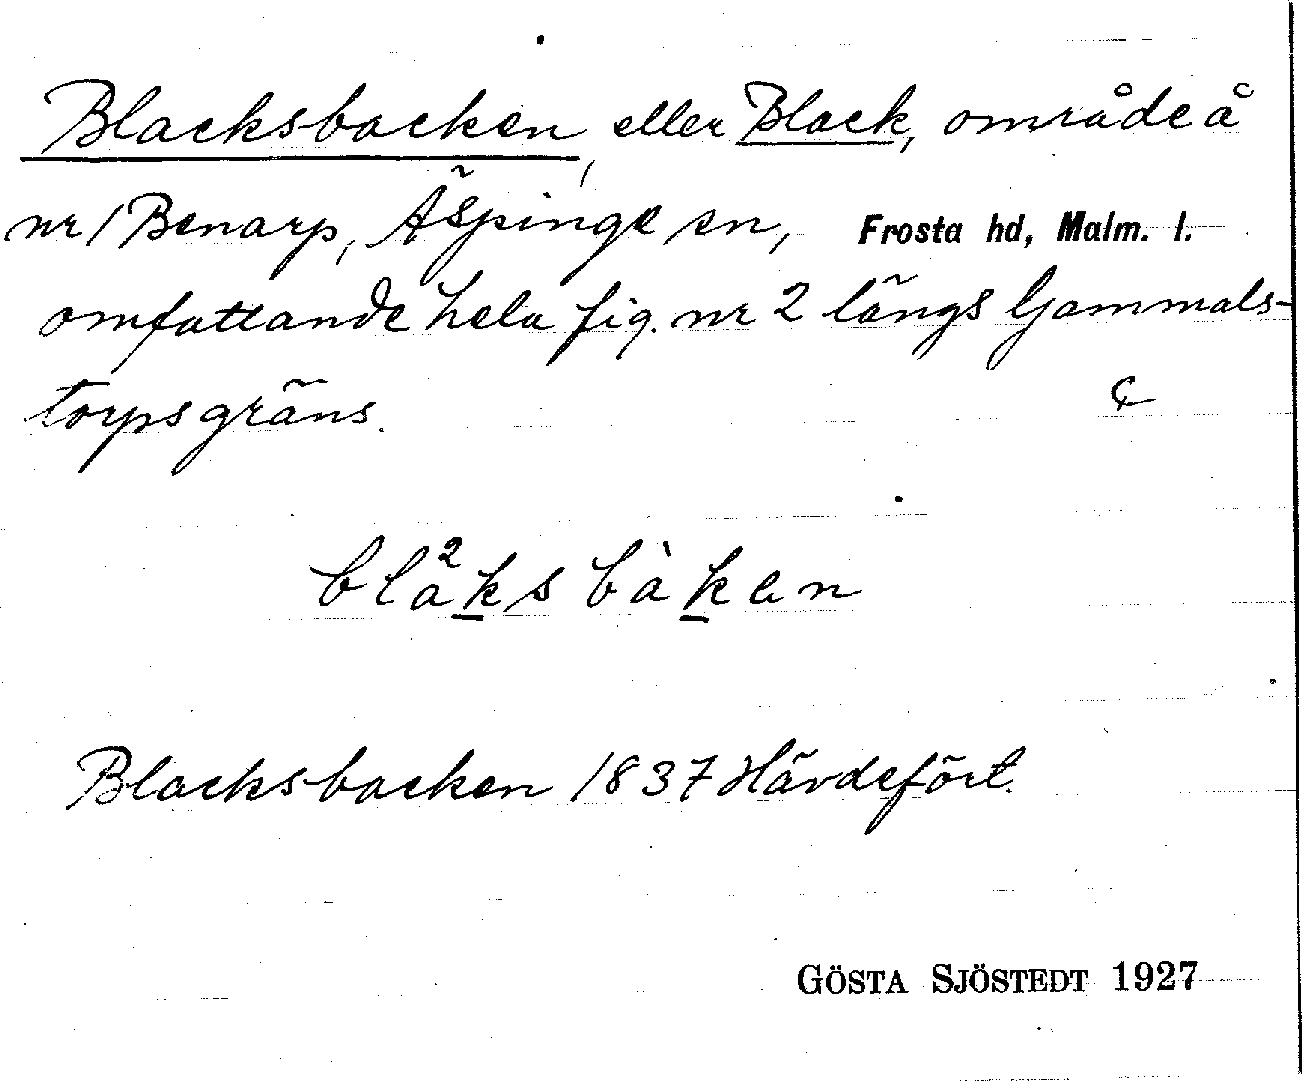 Blacksbacken, eller Black, område å
nr 1 Benarp, Äspinge sn, Frosta hd, Malm. l.
omfattande hela fig. nr 2 längs Gammals-
torpsgräns.
bla²ksbàken
Blacksbacken 1837 Hävdefört.
GÖSTA SJÖSTEDT 1927